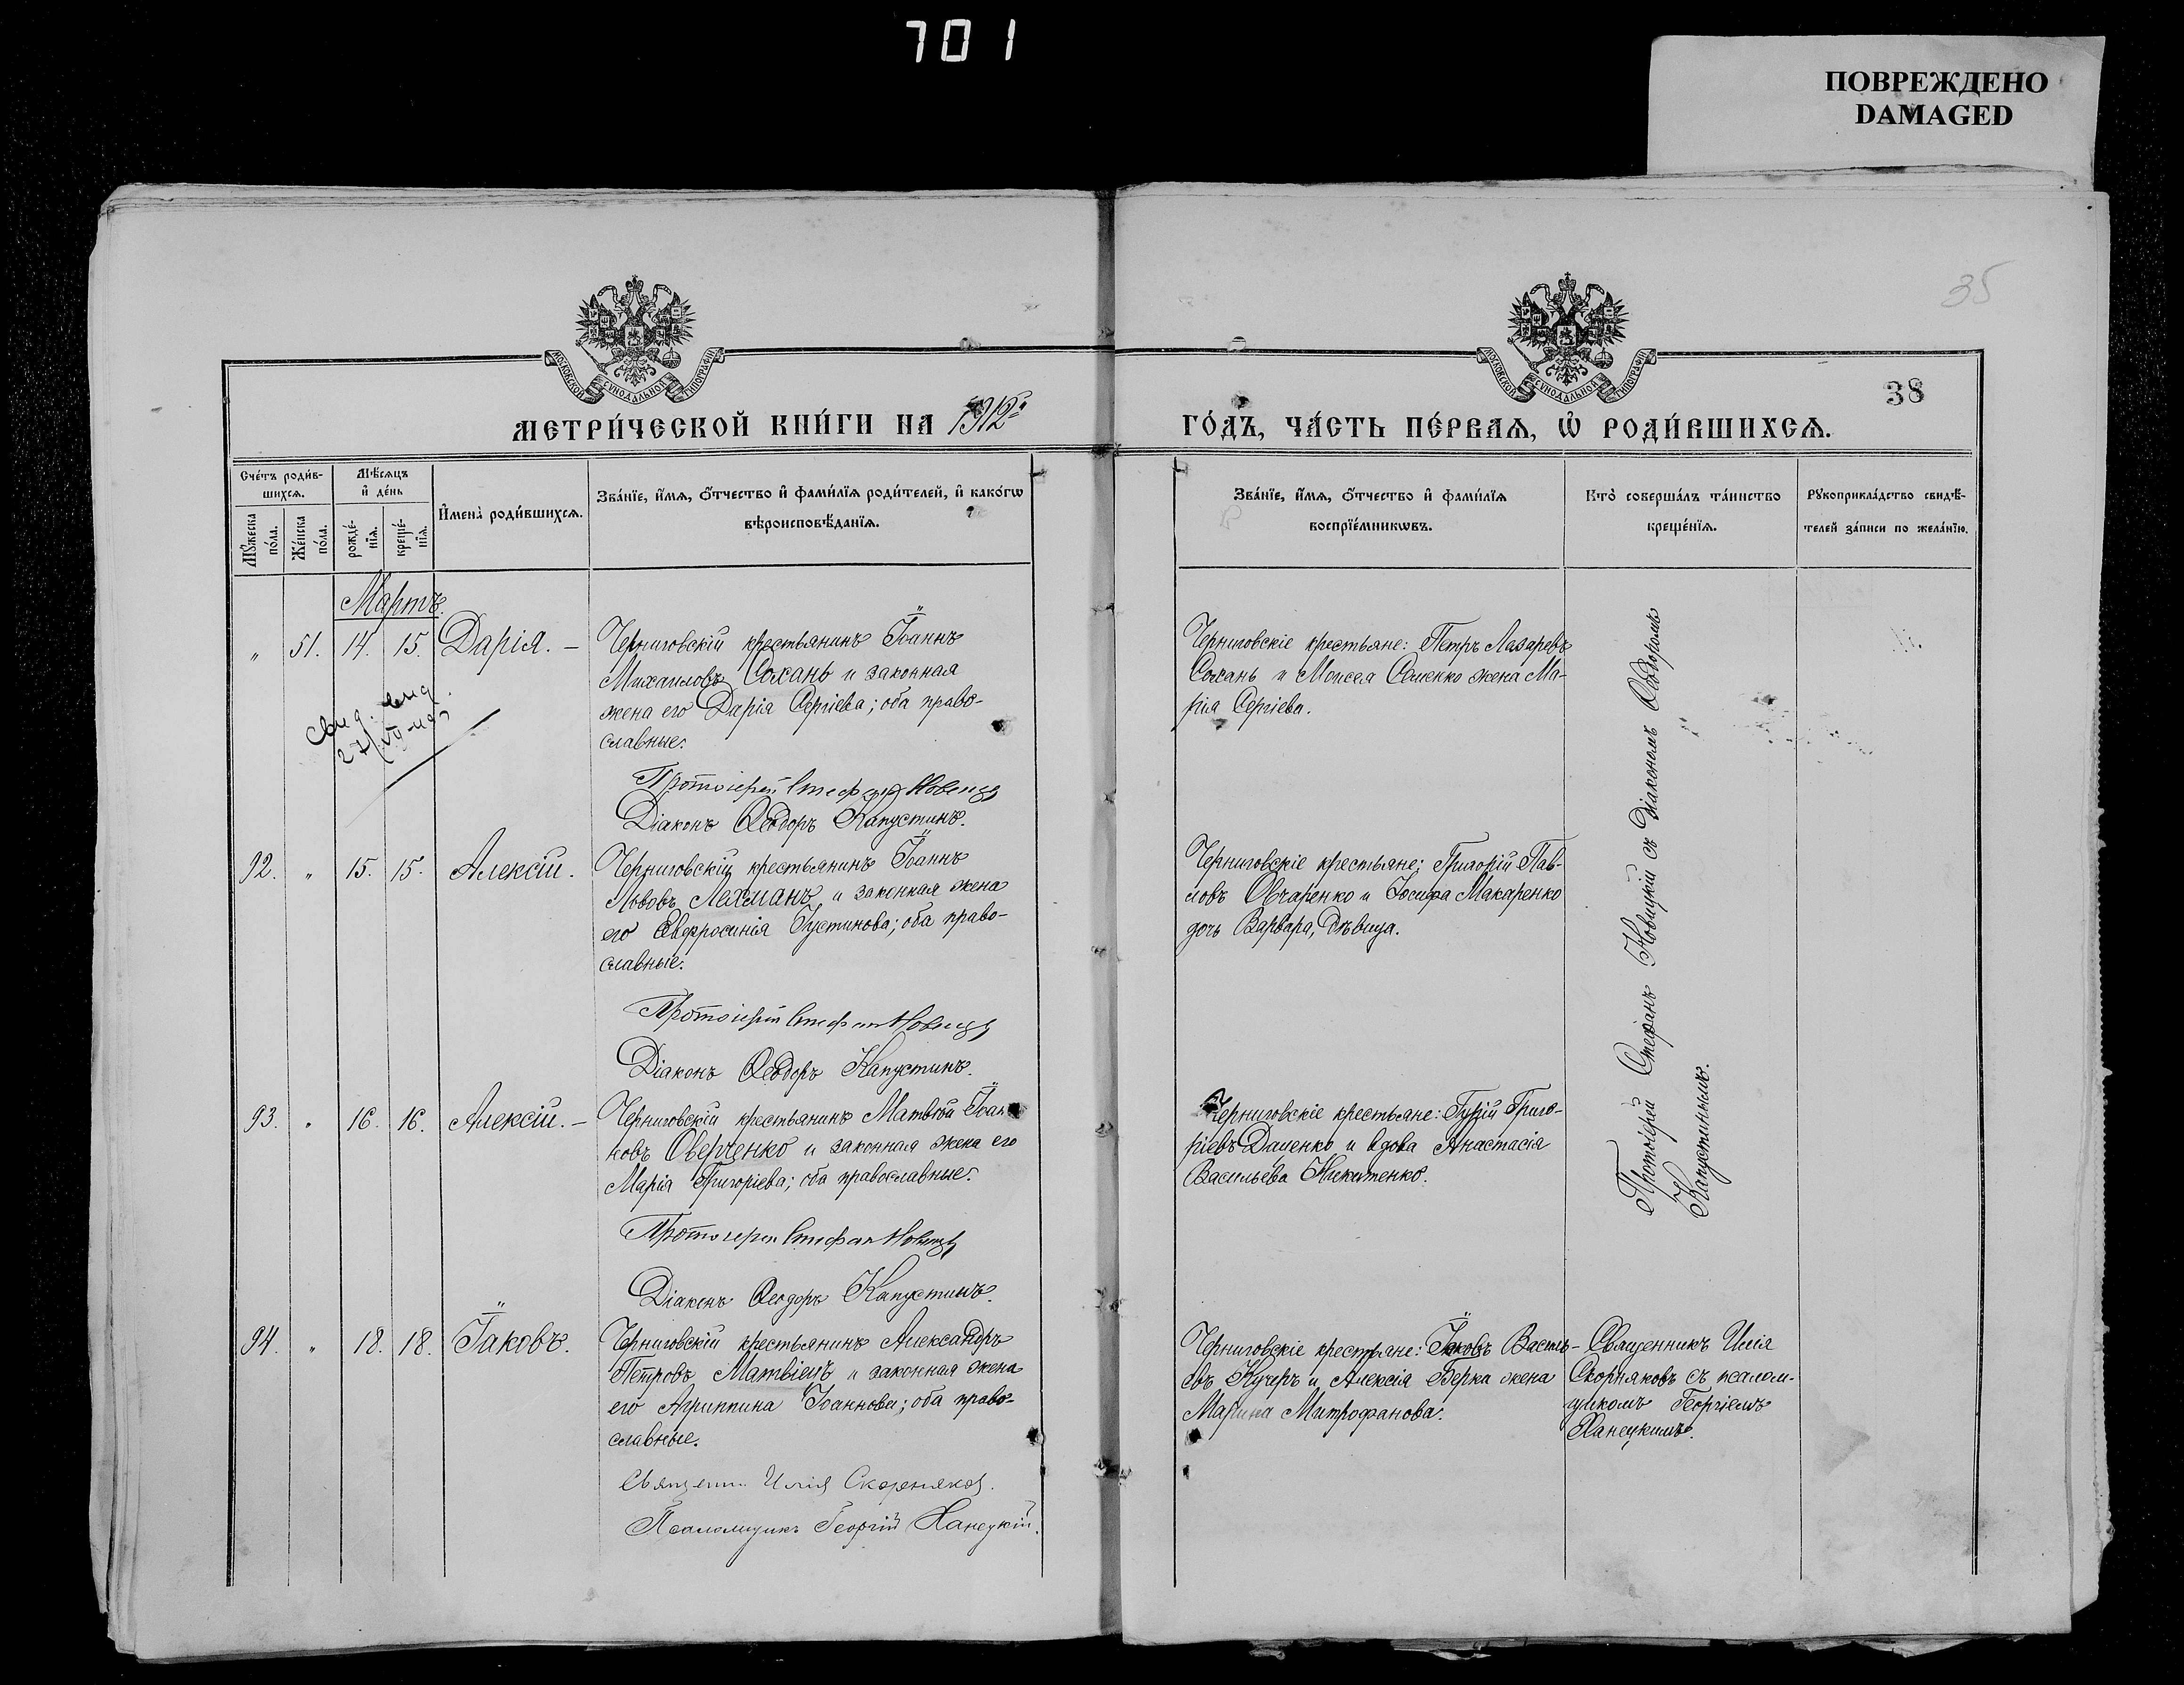 701
ПОВРЕЖДЕНО
DAMAGED
35
38
МОСКОВСКОЙ СѴНОДАЛЬНОЙ ТИПОГРАФІИ
МОСКОВСКОЙ СѴНОДАЛЬНОЙ ТИПОГРАФІИ
МЕТРИ́ЧЕСКОЙ КНИ́ГИ НА 1912й
ГО́ДЪ, ЧА́СТЬ ПЕ́РВАѦ, Ѡ҆ РОДИ́ВШИХСѦ.
Сче́тъ роди́в-
шихсѧ.
Мꙋ́жеска
по́ла.
Же́нска
по́ла.
Мѣ́сѧцъ
и҆ де́нь
рожде́-
нїѧ.
креще́-
нїѧ.
И҆мена̀ роди́вшихсѧ.
Зва́нїе, и҆́мѧ, ѻ҆́тчество и҆ фами́лїѧ роди́телей, и҆ како́гѡ
вѣроисповѣ́данїѧ.
Зва́нїе, и҆́мѧ, ѻ҆́тчество и҆ фами́лїѧ
воспрїе́мникѡвъ.
Кто̀ соверша́лъ та́инство
креще́нїѧ.
Рꙋкоприкла́дство свидѣ́-
телей за́писи по жела́нїю.
Мартъ.
" 51. 14. 15. Дарія. –
Черниговскій крестьянинъ Іоаннъ
Михаиловъ Сохань и законная
жена его Дарія Сергіева; оба право-
славные.
Протоіерей Стефан Новицк
Діаконъ Ѳеодоръ Капустинъ.
Черниговскіе крестьяне: Петръ Лазаревъ
Сохань и Моисея Семенко жена Ма-
рія Сергіева.
92. " 15. 15. Алексій.
Черниговскій крестьянинъ Іоаннъ
Львовъ Лехманъ и законная жена
его Евфросинія Іустинова; оба право-
славные.
Протоіерей Стефан Новицк
Діаконъ Ѳеодоръ Капустинъ.
Черниговскіе крестьяне: Григорій Пав-
ловъ Овчаренко и Іосифа Макаренко
дочь Варвара, дѣвица.
93. " 16. 16. Алексій. –
Черниговскій крестьянинъ Матвѣй Іоан-
новъ Оверченко и законная жена его
Марія Григоріева; оба православные.
Протоіерей Стефан Новицк
Діаконъ Ѳеодоръ Капустинъ.
Черниговскіе крестьяне: Гурій Григо-
ріевъ Даценко и вдова Анастасія
Васильева Никитенко.
Протоіерей Стефанъ Новицкій съ Діакономъ Ѳеодоромъ
Капустинымъ.
94. " 18. 18. Іаковъ.
Черниговскій крестьянинъ Александръ
Петровъ Матвіецъ и законная жена
его Агриппина Іоаннова; оба право-
славные.
Священ. Илія Скорняков.
Псаломщикъ Георгій Ханецкій.
Черниговскіе крестьяне: Іаковъ Василь-
евъ Кучеръ и Алексія Берка жена
Марина Митрофанова.
Священникъ Илія
Скорняковъ съ псалом-
щикомъ Георгіемъ
Ханецкимъ.